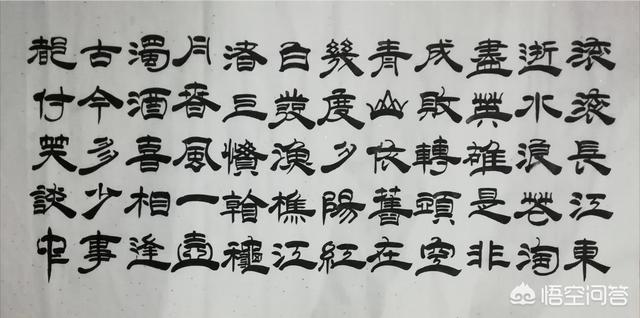 滚滚長江東
逝水浪花淘
盡英雄是非
成敗轉頭空
青山依舊在
幾度夕陽紅
白發漁樵江
渚三慣翰穐
月春風一壺
濁酒喜相逢
古今多少事
都付笑談中
悟空问答